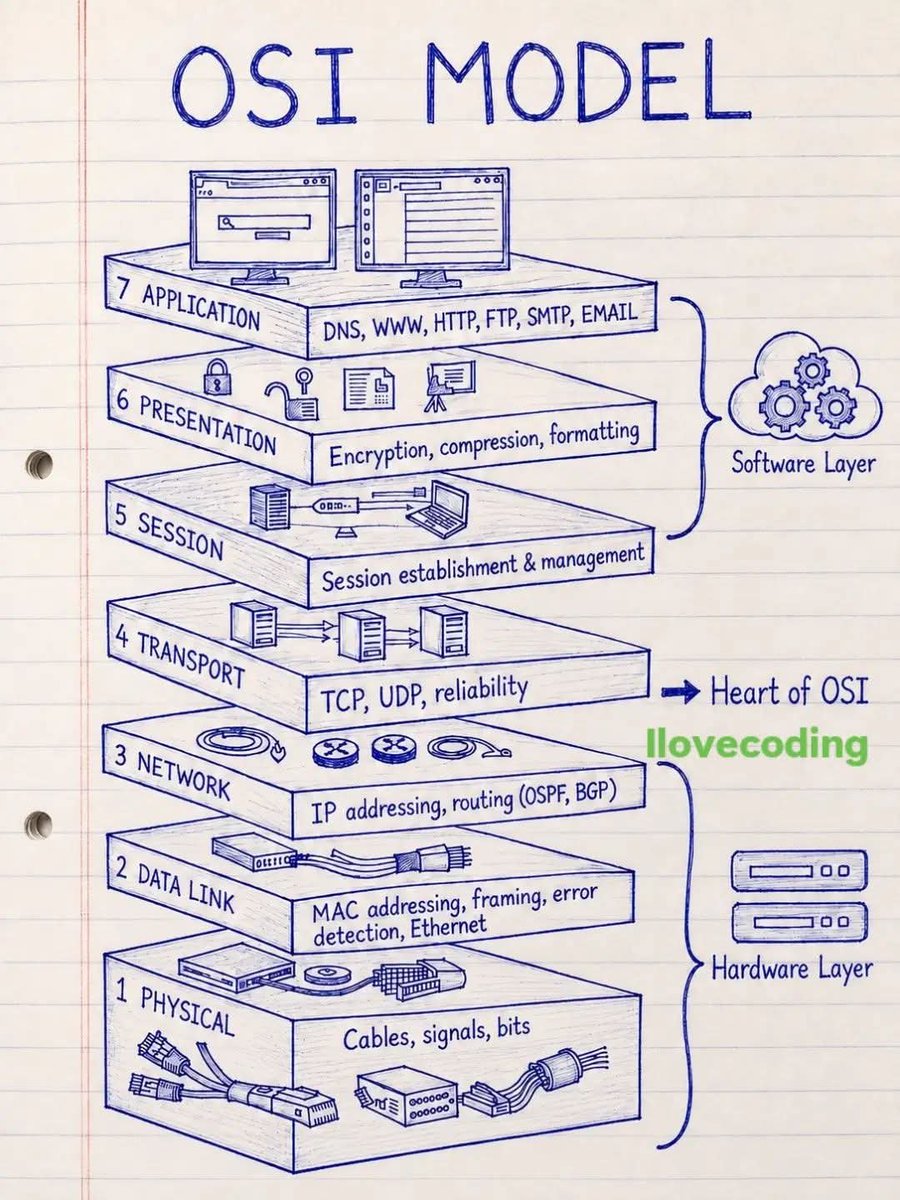 OSI MODEL
7 APPLICATION
DNS, WWW, HTTP, FTP, SMTP, EMAIL
6 PRESENTATION
Encryption, compression, formatting
Software Layer
5 SESSION
Session establishment & management
4 TRANSPORT
TCP, UDP, reliability
Heart of OSI
Ilovecoding
3 NETWORK
IP addressing, routing (OSPF, BGP)
2 DATA LINK
MAC addressing, framing, error
detection, Ethernet
Hardware Layer
1 PHYSICAL
Cables, signals, bits